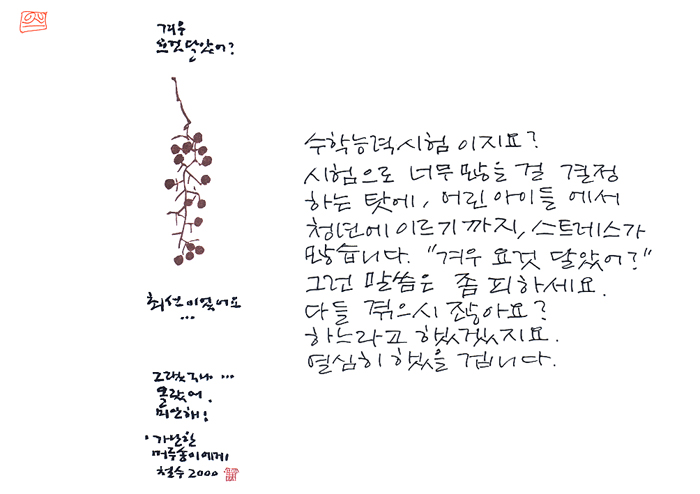 겨우
요것 달았어?
최선이었어요
...
그랬구나 ...
몰랐어.
미안해!
· 가난한
머루송이에게
철수 2000
수학능력시험 이지요?
시험으로 너무 많을 걸 결정
하는 탓에, 어린아이들 에서
청년에 이르기까지, 스트레스가
많습니다. "겨우 요것 달았어?"
그런 말씀은 좀 피하세요.
다들 겪으시잖아요?
하느라고 했겠지요.
열심히 했을 겁니다.